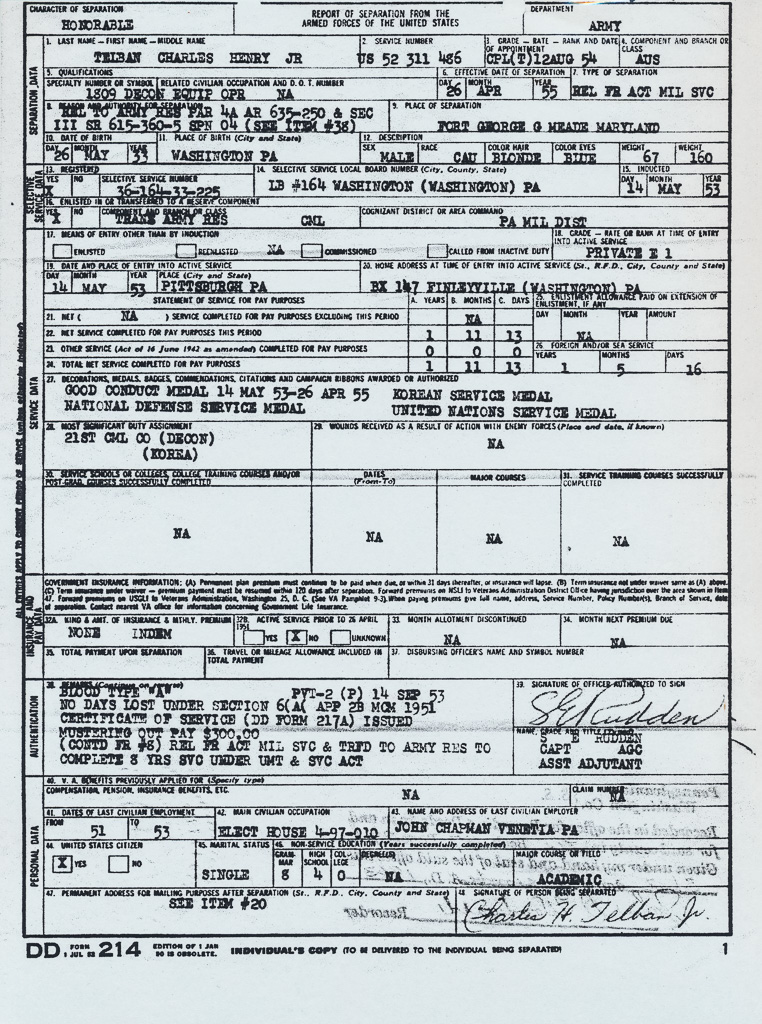 CHARACTER OF SEPARATION
HONORABLE
REPORT OF SEPARATION FROM THE
ARMED FORCES OF THE UNITED STATES
DEPARTMENT
ARMY
SEPARATION DATA
1. LAST NAME - FIRST NAME - MIDDLE NAME
TELBAN CHARLES HENRY JR
2. SERVICE NUMBER
US 52 311 486
3. GRADE - RATE - RANK AND DATE OF APPOINTMENT
CPL(T)12AUG 54
4. COMPONENT AND BRANCH OR CLASS
AUS
5. QUALIFICATIONS
SPECIALTY NUMBER OR SYMBOL RELATED CIVILIAN OCCUPATION AND D.O.T. NUMBER
1809 DECON EQUIP OPR NA
6. EFFECTIVE DATE OF SEPARATION
DAY MONTH YEAR
26 APR 55
7. TYPE OF SEPARATION
REL FR ACT MIL SVC
8. REASON AND AUTHORITY FOR SEPARATION
REL TO ARMY RES PAR 4A AR 635-250 & SEC
III SR 615-360-5 SPN 04 (SEE ITEM #38)
9. PLACE OF SEPARATION
FORT GEORGE G MEADE MARYLAND
10. DATE OF BIRTH
DAY MONTH YEAR
26 MAY 33
11. PLACE OF BIRTH (City and State)
WASHINGTON PA
12. DESCRIPTION
SEX RACE COLOR HAIR COLOR EYES HEIGHT WEIGHT
MALE CAU BLONDE BLUE 67 160
SELECTIVE SERVICE DATA
13. REGISTERED
YES NO SELECTIVE SERVICE NUMBER
X 36-164-33-225
14. SELECTIVE SERVICE LOCAL BOARD NUMBER (City, County, State)
LB #164 WASHINGTON (WASHINGTON) PA
15. INDUCTED
DAY MONTH YEAR
14 MAY 53
16. ENLISTED IN OR TRANSFERRED TO A RESERVE COMPONENT
YES NO COMPONENT AND BRANCH OR CLASS
X TRANS ARMY RES CML
COGNIZANT DISTRICT OR AREA COMMAND
PA MIL DIST
SERVICE DATA
17. MEANS OF ENTRY OTHER THAN BY INDUCTION
ENLISTED REENLISTED NA COMMISSIONED CALLED FROM INACTIVE DUTY
18. GRADE - RATE OR RANK AT TIME OF ENTRY INTO ACTIVE SERVICE
PRIVATE E 1
19. DATE AND PLACE OF ENTRY INTO ACTIVE SERVICE
DAY MONTH YEAR PLACE (City and State)
14 MAY 53 PITTSBURGH PA
20. HOME ADDRESS AT TIME OF ENTRY INTO ACTIVE SERVICE (St., R.F.D., City, County and State)
BX 147 FINLEYVILLE (WASHINGTON) PA
STATEMENT OF SERVICE FOR PAY PURPOSES
A. YEARS B. MONTHS C. DAYS
25. ENLISTMENT ALLOWANCE PAID ON EXTENSION OF ENLISTMENT, IF ANY
DAY MONTH YEAR AMOUNT
NA
21. NET ( NA ) SERVICE COMPLETED FOR PAY PURPOSES EXCLUDING THIS PERIOD
NA
22. NET SERVICE COMPLETED FOR PAY PURPOSES THIS PERIOD
1 11 13
23. OTHER SERVICE (Act of 16 June 1942 as amended) COMPLETED FOR PAY PURPOSES
0 0 0
24. TOTAL NET SERVICE COMPLETED FOR PAY PURPOSES
1 11 13
26. FOREIGN AND/OR SEA SERVICE
YEARS MONTHS DAYS
1 5 16
27. DECORATIONS, MEDALS, BADGES, COMMENDATIONS, CITATIONS AND CAMPAIGN RIBBONS AWARDED OR AUTHORIZED
GOOD CONDUCT MEDAL 14 MAY 53-26 APR 55 KOREAN SERVICE MEDAL
NATIONAL DEFENSE SERVICE MEDAL UNITED NATIONS SERVICE MEDAL
28. MOST SIGNIFICANT DUTY ASSIGNMENT
21ST CML CO (DECON)
(KOREA)
29. WOUNDS RECEIVED AS A RESULT OF ACTION WITH ENEMY FORCES (Place and date, if known)
NA
30. SERVICE SCHOOLS OR COLLEGES, COLLEGE TRAINING COURSES AND/OR
POST-GRAD. COURSES SUCCESSFULLY COMPLETED
DATES
(From-To)
MAJOR COURSES
31. SERVICE TRAINING COURSES SUCCESSFULLY COMPLETED
NA NA NA NA
INSURANCE AND PAY DATA
GOVERNMENT INSURANCE INFORMATION: (A) Permanent plan premium must continue to be paid when due, or within 31 days thereafter, or insurance will lapse. (B) Term insurance not under waiver same as (A) above.
(C) Term insurance under waiver - premium payment must be resumed within 120 days after separation. Forward premiums on NSLI to Veterans Administration District Office having jurisdiction over the area shown in Item
47. Forward premiums on USGLI to Veterans Administration, Washington 25, D. C. (See VA Pamphlet 9-3). When paying premiums give full name, address, Service Number, Policy Number(s), Branch of Service, date
of separation. Contact nearest VA office for information concerning Government Life Insurance.
32A. KIND & AMT. OF INSURANCE & MTHLY. PREMIUM
NONE INDEM
32B. ACTIVE SERVICE PRIOR TO 26 APRIL 1951
YES X NO UNKNOWN
33. MONTH ALLOTMENT DISCONTINUED
NA
34. MONTH NEXT PREMIUM DUE
NA
35. TOTAL PAYMENT UPON SEPARATION
36. TRAVEL OR MILEAGE ALLOWANCE INCLUDED IN TOTAL PAYMENT
37. DISBURSING OFFICER'S NAME AND SYMBOL NUMBER
AUTHENTICATION
38. REMARKS (Continue on reverse)
BLOOD TYPE "A" PVT-2 (P) 14 SEP 53
NO DAYS LOST UNDER SECTION 6(A( APP 2B MCM 1951
CERTIFICATE OF SERVICE (DD FORM 217A) ISSUED
MUSTERING OUT PAY $300.00
(CONTD FR #8) REL FR ACT MIL SVC & TRFD TO ARMY RES TO
COMPLETE 8 YRS SVC UNDER UMT & SVC ACT
39. SIGNATURE OF OFFICER AUTHORIZED TO SIGN
S E Rudden
NAME, GRADE AND TITLE
S E RUDDEN
CAPT AGC
ASST ADJUTANT
PERSONAL DATA
40. V. A. BENEFITS PREVIOUSLY APPLIED FOR (Specify type)
COMPENSATION, PENSION, INSURANCE BENEFITS, ETC.
NA
CLAIM NUMBER
NA
41. DATES OF LAST CIVILIAN EMPLOYMENT
FROM TO
51 53
42. MAIN CIVILIAN OCCUPATION
ELECT HOUSE 4-97-010
43. NAME AND ADDRESS OF LAST CIVILIAN EMPLOYER
JOHN CHAPMAN VENETIA PA
44. UNITED STATES CITIZEN
X YES NO
45. MARITAL STATUS
SINGLE
46. NON-SERVICE EDUCATION (Years successfully completed)
GRAMMAR HIGH SCHOOL COLLEGE DEGREE(S) MAJOR COURSE OR FIELD
8 4 0 NA ACADEMIC
47. PERMANENT ADDRESS FOR MAILING PURPOSES AFTER SEPARATION (St., R.F.D., City, County and State)
SEE ITEM #20
48. SIGNATURE OF PERSON BEING SEPARATED
Charles H. Telban Jr.
Recorder
DD FORM 1 JUL 52 214
EDITION OF 1 JAN 50 IS OBSOLETE.
INDIVIDUAL'S COPY (TO BE DELIVERED TO THE INDIVIDUAL BEING SEPARATED)
1